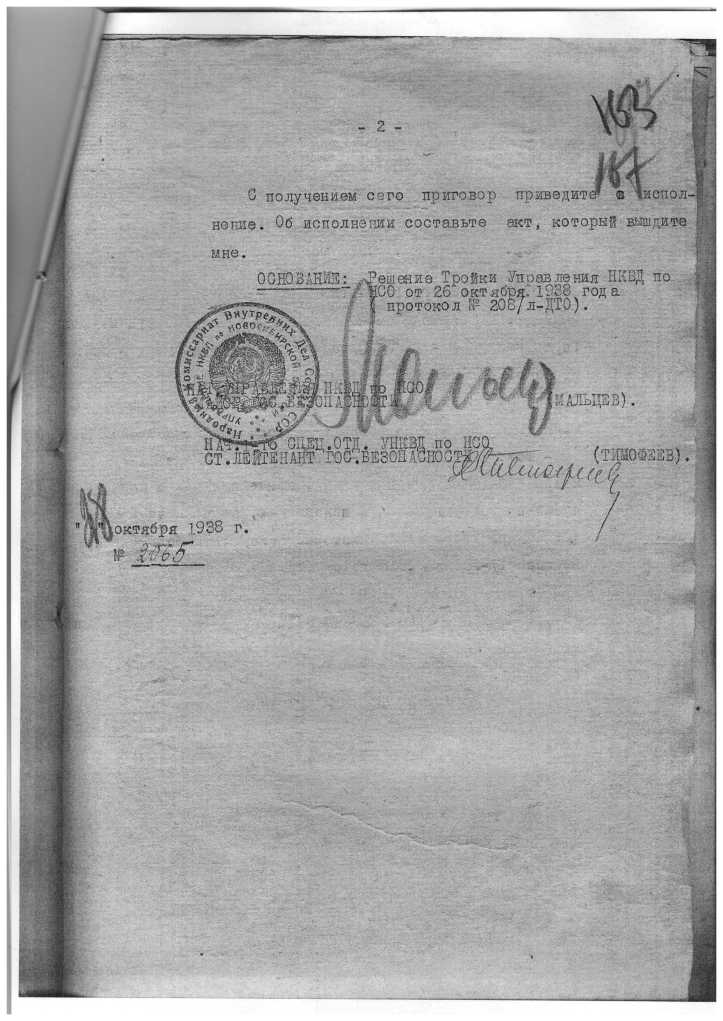 163
167
- 2 -
С получением сего приговор приведите в испол-
нение. Об исполнении составьте акт, который вышлите
мне.
ОСНОВАНИЕ: Решение Тройки Управления НКВД по
НСО от 26 октября 1938 года
( протокол № 208/л-ДТО).
Народный Комиссариат Внутренних Дел
НАЧ УПРАВЛЕНИЯ НКВД по НСО
МАЙОР ГОС.БЕЗОПАСНОСТИ (МАЛЬЦЕВ).
НАЧ.1-го СПЕЦ.ОТД. УНКВД по НСО
СТ.ЛЕЙТЕНАНТ ГОС.БЕЗОПАСНОСТИ (ТИМОФЕЕВ).
"28" октября 1938 г.
№ 2565